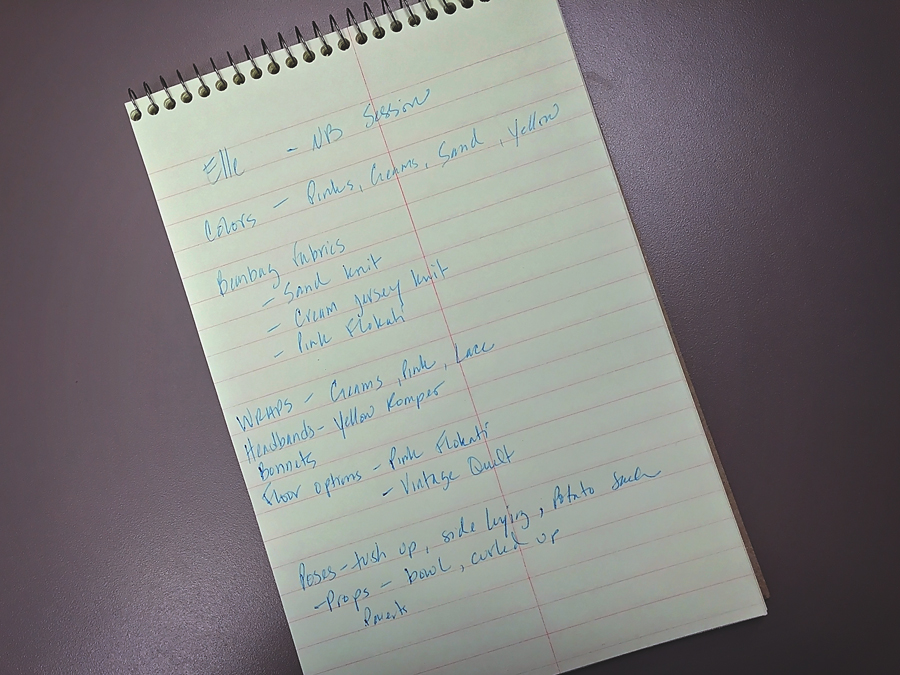 Elle - NB Session
Colors - Pinks, Creams, Sand, Yellow
Beanbag Fabrics
- Sand knit
- Cream jersey knit
- Pink Flokati
WRAPS - Creams, Pink, Lace
Headbands - Yellow Romper
Bonnets
Floor options - Pink Flokati
- Vintage Quilt
Poses - tush up, side laying, Potato Sack
- Props - bowl, curled up